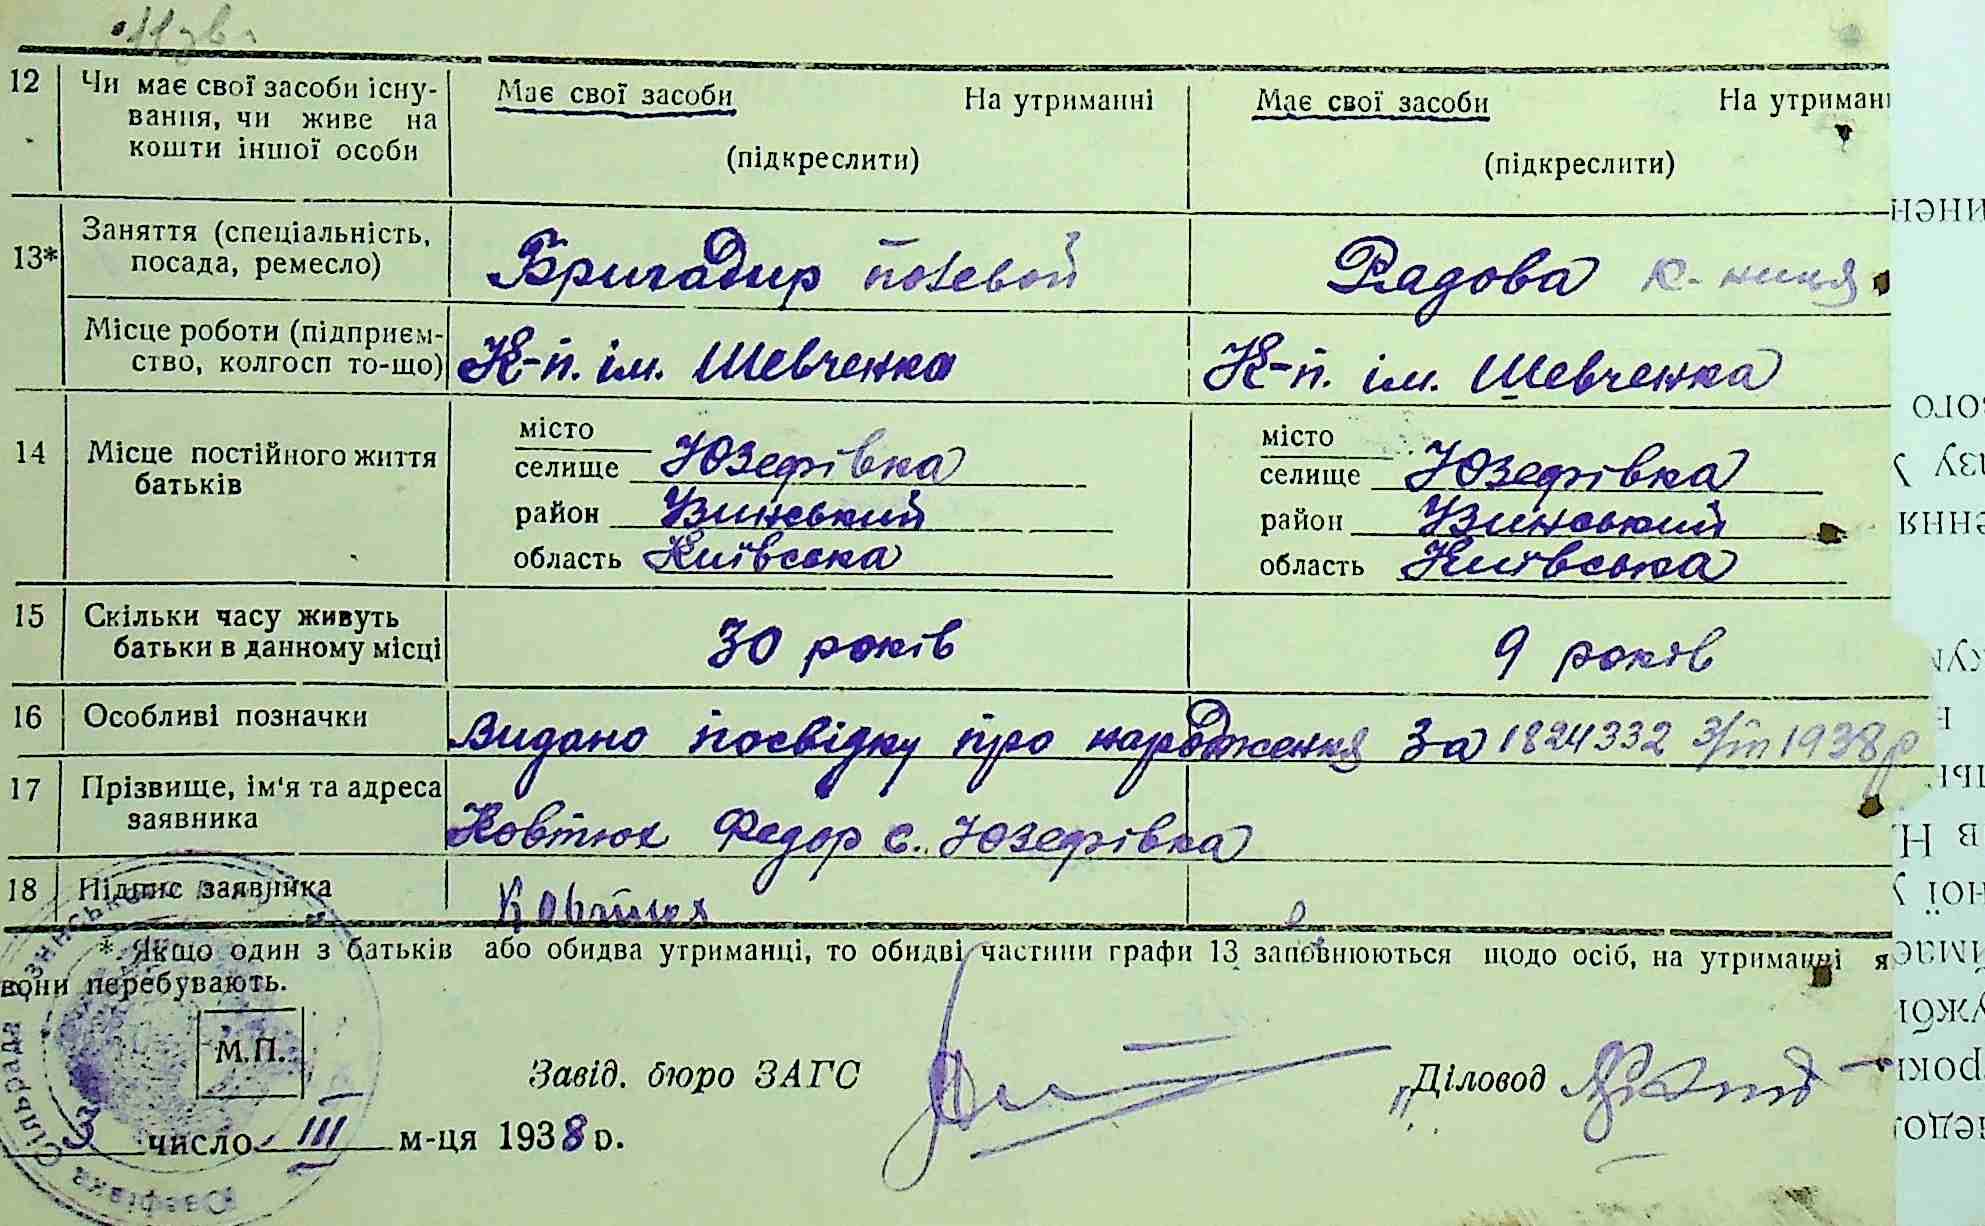 12 Чи має свої засоби існу-
вання, чи живе на
кошти іншої особи
Має свої засоби На утриманні
(підкреслити)
Має свої засоби На утриман
(підкреслити)
13* Заняття (спеціальність,
посада, ремесло)
Бригадир польовой
Рядова к-ниця
Місце роботи (підприєм-
ство, колгосп то-що)
К-п. ім. Шевченка
К-п. ім. Шевченка
14 Місце постійного життя
батьків
місто
селище Юзефівка
район Узинський
область Київська
місто
селище Юзефівка
район Узинський
область Київська
15 Скільки часу живуть
батьки в данному місці
30 років
9 років
16 Особливі позначки
Видано посвідку про народження за 1824332 3/III 1938 р
17 Прізвище, ім'я та адреса
заявника
Ковтюх Федор с. Юзефівка
18 Підпис заявника
Ковтюх
* Якщо один з батьків або обидва утриманці, то обидві частини графи 13 заповнюються щодо осіб, на утриманні я
вони перебувають.
М.П.
Завід. бюро ЗАГС
Діловод
3 число III м-ця 1938 р.
Юзефівка Сільрада Узинського